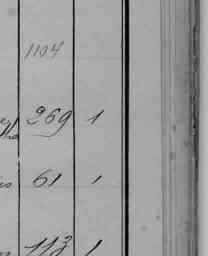 1104
269 1
61 1
113 1